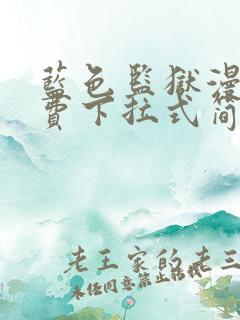 藍色監獄漫
費下拉式簡
老王家的老三
未經同意禁止轉載